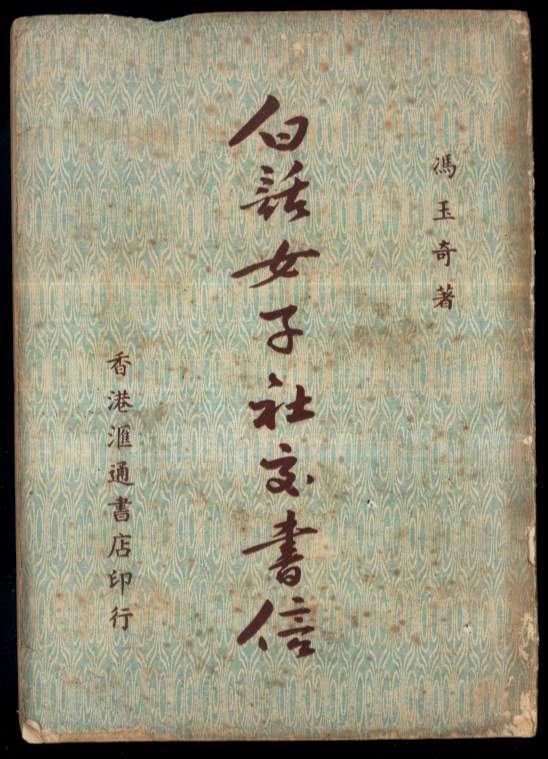 馮玉奇著
白話女子社交書信
香港滙通書店印行